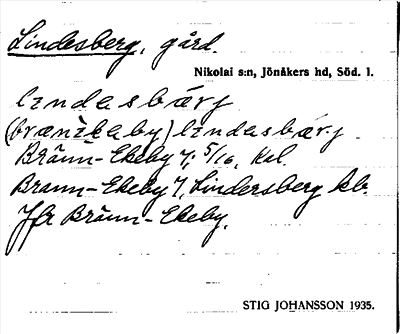 Lindesberg, gård.
Nikolai s:n, Jönåkers hd, Söd. l.
lindasbärj
(brænikaby) lindasbärj
Bränn-Ekeby 7; 5/16, Kal.
Brann-Ekeby 7, Lindersberg kb.
Jfr Bränn-Ekeby.
STIG JOHANSSON 1935.